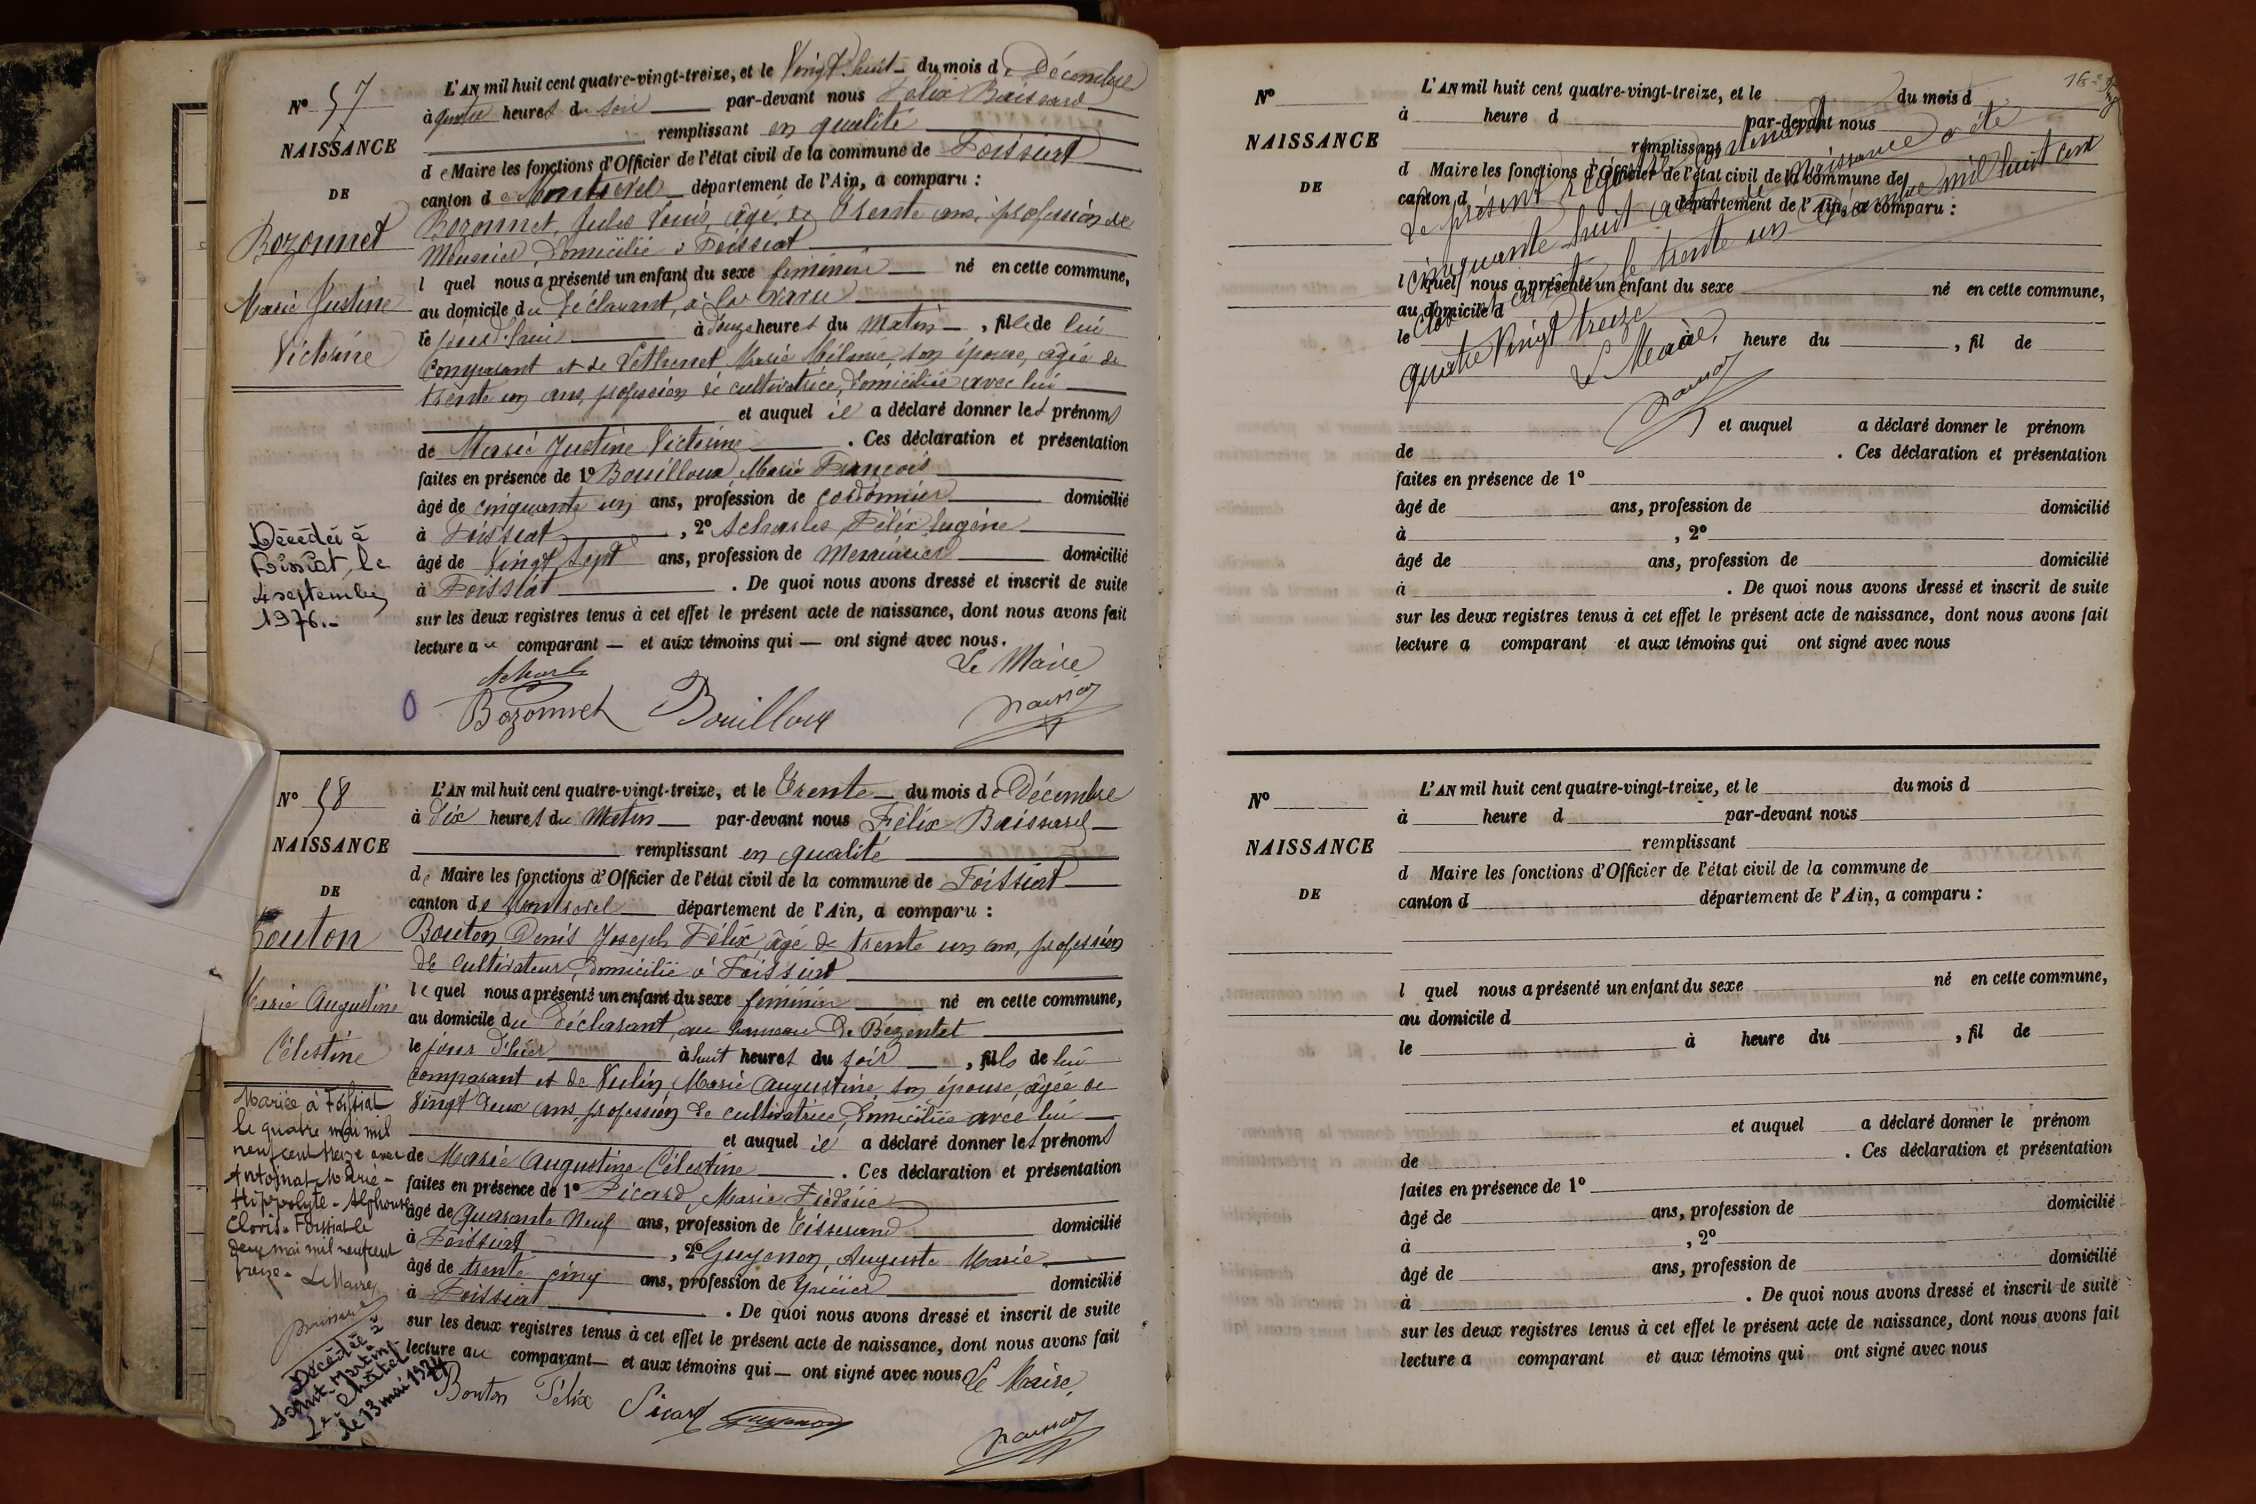 N° 57
NAISSANCE
DE
Bozonnet
Marie Justine
Victorine
Décédée à
Foissiat, le
4 septembre
1976.-
L'AN mil huit cent quatre-vingt-treize, et le Vingt huit du mois de Décembre
à quatre heures du soir par-devant nous Félix Buissard
remplissant en qualité
de Maire les fonctions d'Officier de l'état civil de la commune de Foissiat
canton de Montrevel département de l'Ain, a comparu :
Bozonnet, Jules Louis, âgé de Trente ans, profession de
Meunier, domicilié à Foissiat
lequel nous a présenté un enfant du sexe féminin né en cette commune,
au domicile du déclarant, à la
le jour d'hui à douze heures du Matin, fille de lui
comparant et de Marie Mélanie, son épouse, âgée de
trente un ans, profession de cultivatrice, domiciliée avec lui
et auquel il a déclaré donner les prénoms
de Marie Justine Victorine. Ces déclaration et présentation
faites en présence de 1° Bouilloux Marie François
âgé de cinquante un ans, profession de cordonnier domicilié
à Foissiat, 2° Félix Eugène
âgé de Vingt sept ans, profession de Menuisier domicilié
à Foissiat. De quoi nous avons dressé et inscrit de suite
sur les deux registres tenus à cet effet le présent acte de naissance, dont nous avons fait
lecture au comparant — et aux témoins qui — ont signé avec nous.
Le Maire
Bozonnet Bouilloux
N° 58
NAISSANCE
DE
Bouton
Marie Augustine
Célestine
Mariée à Foissiat
le quatre mai mil
neuf cent treize avec
Antoinat Marie-
Hippolyte-Alphonse
Clovis. Foissiat le
deux mai mil neuf cent
treize. Le Maire
Décédée à
Saint-Martin-
Le-Châtel
le 13 mai 1974
L'AN mil huit cent quatre-vingt-treize, et le Trente du mois de Décembre
à dix heures du Matin par-devant nous Félix Buissard
remplissant en qualité
de Maire les fonctions d'Officier de l'état civil de la commune de Foissiat
canton de Montrevel département de l'Ain, a comparu :
Bouton Denis Joseph Félix, âgé de trente un ans, profession
de cultivateur, domicilié à Foissiat
lequel nous a présenté un enfant du sexe féminin né en cette commune,
au domicile du déclarant, au hameau de Bezentet
le jour d'hier à huit heures du soir, fils de lui
comparant et de Vulin Marie Augustine son épouse, âgée de
Vingt deux ans, profession de cultivatrice, domiciliée avec lui
et auquel il a déclaré donner les prénoms
de Marie Augustine Célestine. Ces déclaration et présentation
faites en présence de 1° Picard, Marie Frédéric
âgé de quarante neuf ans, profession de Tisserand domicilié
à Foissiat, 2° Guygnon, Auguste Marie
âgé de trente cinq ans, profession de domicilié
à Foissiat. De quoi nous avons dressé et inscrit de suite
sur les deux registres tenus à cet effet le présent acte de naissance, dont nous avons fait
lecture au comparant — et aux témoins qui — ont signé avec nous
Le Maire,
Bouton Félix Picard
N°
NAISSANCE
DE
L'AN mil huit cent quatre-vingt-treize, et le du mois d
à heure d par-devant nous
remplissant
d Maire les fonctions d'Officier de l'état civil de la commune de
canton d département de l'Ain, a comparu :
Le présent registre contenant
cinquante huit actes de naissance a été
clos et arrêté le trente un Décembre mil huit cent
quatre Vingt treize
Le Maire,
l quel nous a présenté un enfant du sexe né en cette commune,
au domicile d
le à heure du , fil de
et auquel a déclaré donner le prénom
de . Ces déclaration et présentation
faites en présence de 1°
âgé de ans, profession de domicilié
à , 2°
âgé de ans, profession de domicilié
à . De quoi nous avons dressé et inscrit de suite
sur les deux registres tenus à cet effet le présent acte de naissance, dont nous avons fait
lecture a comparant et aux témoins qui ont signé avec nous
N°
NAISSANCE
DE
L'AN mil huit cent quatre-vingt-treize, et le du mois d
à heure d par-devant nous
remplissant
d Maire les fonctions d'Officier de l'état civil de la commune de
canton d département de l'Ain, a comparu :
l quel nous a présenté un enfant du sexe né en cette commune,
au domicile d
le à heure du , fil de
et auquel a déclaré donner le prénom
de . Ces déclaration et présentation
faites en présence de 1°
âgé de ans, profession de domicilié
à , 2°
âgé de ans, profession de domicilié
à . De quoi nous avons dressé et inscrit de suite
sur les deux registres tenus à cet effet le présent acte de naissance, dont nous avons fait
lecture a comparant et aux témoins qui ont signé avec nous